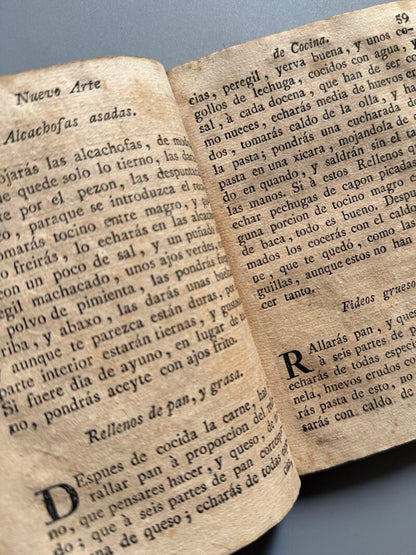 Nuevo Arte
Alcachofas asadas.
ojarás las alcachofas, de mo
e quede solo lo tierno, las dar
te por el pezon, las despunt
, paraque se introduzca el to
omarás tocino entre magro, y
lo freirás, lo echarás en las alca
on un poco de sal, y un puñad
egil machacado, unos ajos verdes
polvo de pimienta, las pondrás
riba, y abaxo, las darás una bue
aunque te parezca están duras, por
parte interior estarán tiernas, y gusta
Si fuere dia de ayuno, en lugar de
no, pondrás aceyte con ajos frito.
Rellenos de pan, y grasa.
DEspues de cocida la carne, has
rallar pan à proporcion del
no, que pensares hacer, y queso, de
do; que à seis partes de pan corres
una de queso; echarás de todas
de Cocina. 59
cias, peregil, yerva buena, y unos co-
gollos de lechuga, cocidos con agua, y
sal, à cada docena, que han de ser co
mo nueces, echarás media de huevos
dos, tomarás caldo de la olla, y h
la pasta; pondrás una cucharada
pasta en una xicara, mojandola de
do en quando, y saldrán sin el
las manos. Si à estos Rellenos qu
echar pechugas de capon picada
guna porcion de tocino magro
de baca, todo es bueno. Despu
mados los cocerás con el caldo
ne, que te quedó, como las
guillas, aunque estos no han
cer tanto.
Fideos grueso
RAllarás pan, y ques
à seis partes de
echarás de todas especi
nela, huevos crudos e
rás pasta de esto, no
sarás con caldo de